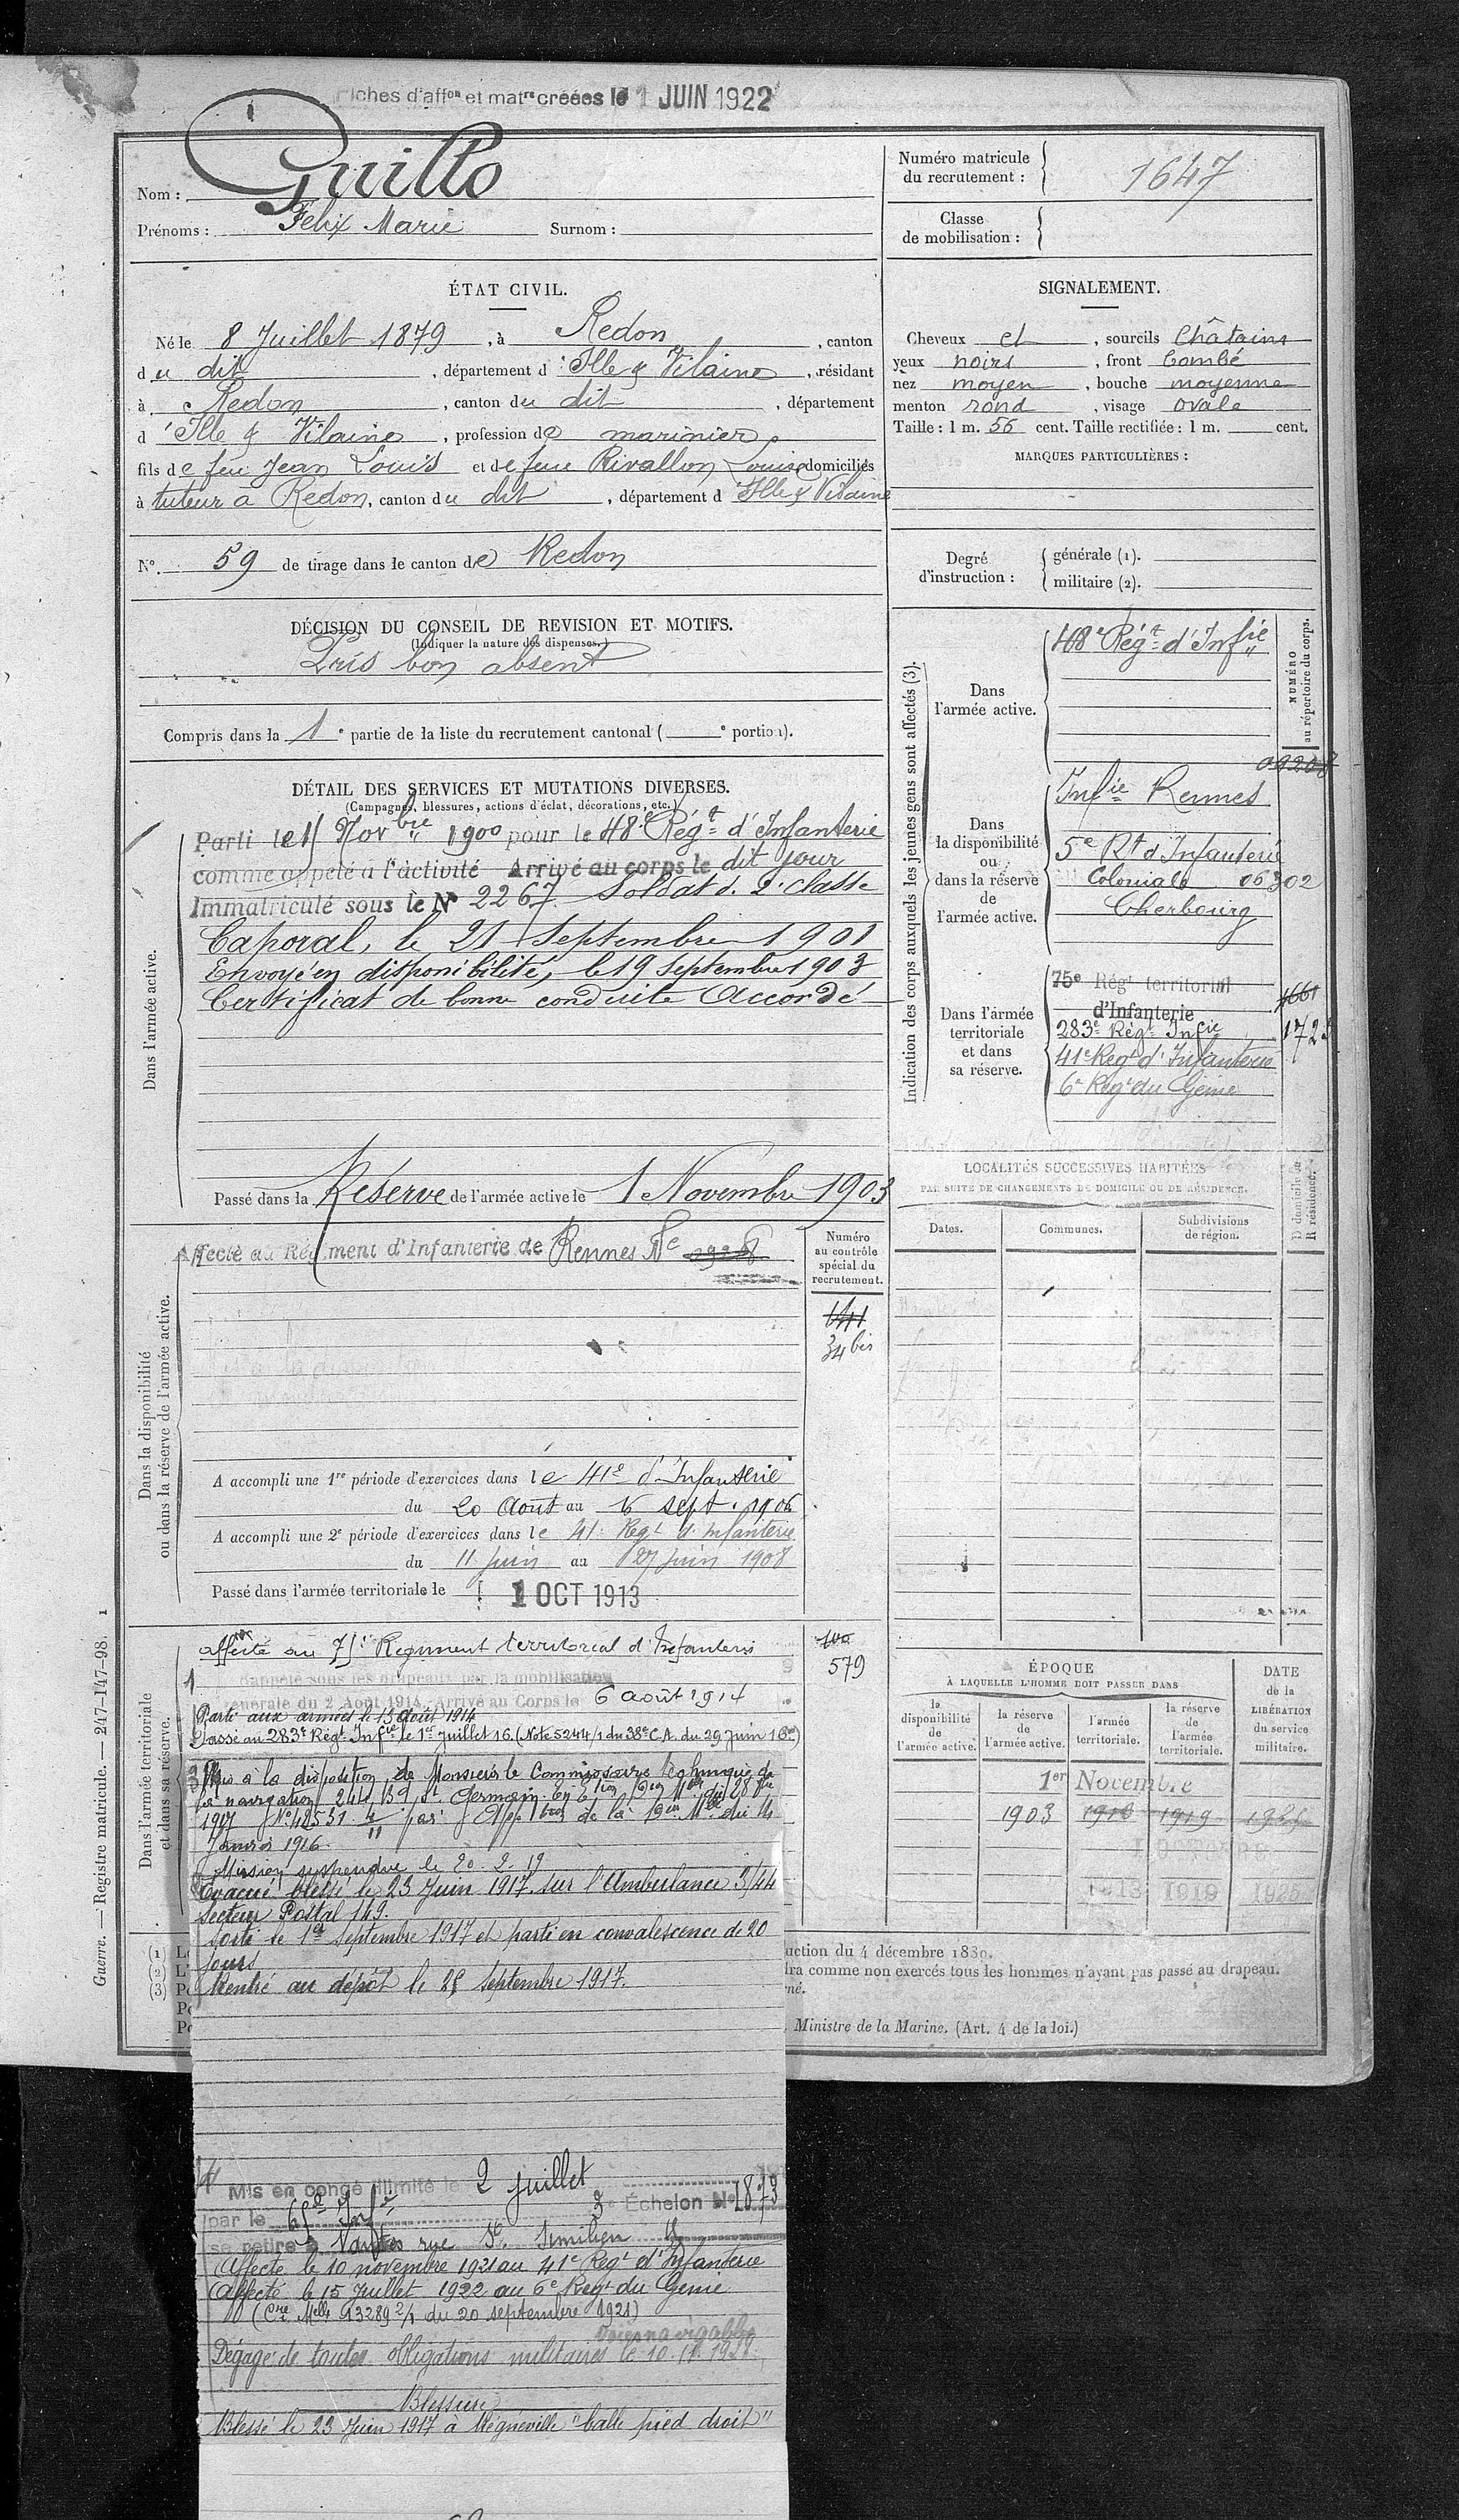 Fiches d'aff^on et mat^re créées le 1 JUIN 1922
Nom : Guillo
Prénoms : Félix Marie Surnom :
Numéro matricule du recrutement : 1647
Classe de mobilisation :
ÉTAT CIVIL.
Né le 8 Juillet 1879, à Redon, canton
du dit, département d'Ille & Vilaine, résidant
à Redon, canton du dit, département
d'Ille & Vilaine, profession de marinier
fils de feu Jean Louis et de feue Rivallon Louise domiciliés
à tuteur à Redon, canton du dit, département d Ille & Vilaine
N° 59 de tirage dans le canton de Redon
SIGNALEMENT.
Cheveux et, sourcils Châtains
yeux noirs, front bombé
nez moyen, bouche moyenne
menton rond, visage ovale
Taille : 1 m. 56 cent. Taille rectifiée : 1 m. cent.
MARQUES PARTICULIÈRES :
Degré d'instruction : générale (1).
militaire (2).
DÉCISION DU CONSEIL DE REVISION ET MOTIFS.
(Indiquer la nature des dispenses.)
Pris bon absent
Compris dans la 1e partie de la liste du recrutement cantonal ( e portion).
DÉTAIL DES SERVICES ET MUTATIONS DIVERSES.
(Campagnes, blessures, actions d'éclat, décorations, etc.)
Dans l'armée active.
Parti le 15 Novbre 1900 pour le 48e Régt d'Infanterie
comme appelé à l'activité Arrivé au corps le dit jour
Immatriculé sous le No 2267 Soldat de 2e classe
Caporal, le 21 Septembre 1901
Envoyé en disponibilité, le 19 Septembre 1903
Certificat de bonne conduite Accordé
Passé dans la Réserve de l'armée active le 1 Novembre 1903
Indication des corps auxquels les jeunes gens sont affectés (3).
NUMÉRO au répertoire du corps.
Dans l'armée active.
48e Régt d'Infie
Dans la disponibilité ou dans la réserve de l'armée active.
09208
Infie Rennes
5e Rt d'Infanterie
Coloniale 06302
Cherbourg
Dans l'armée territoriale et dans sa réserve.
75e Régt territorial
d'Infanterie
283e Régt Infie
41e Regt d'Infanterie
6e Regt du Génie
Dans la disponibilité ou dans la réserve de l'armée active.
Affecté au Régiment d'Infanterie de Rennes No
Numéro au contrôle spécial du recrutement.
34 bis
A accompli une 1re période d'exercices dans le 41e d'Infanterie
du 20 Août au 16 sept. 1906
A accompli une 2e période d'exercices dans le 41 Regt d'Infanterie
du 11 juin au 27 juin 1908
Passé dans l'armée territoriale le 1 OCT 1913
LOCALITÉS SUCCESSIVES HABITÉES
PAR SUITE DE CHANGEMENTS DE DOMICILE OU DE RÉSIDENCE.
D domicile ou R résidence.
Dates. Communes. Subdivisions de région.
Dans l'armée territoriale et dans sa réserve.
affecté au 75e Régiment territorial d'Infanterie
579
rappelé sous les drapeaux par la mobilisation
générale du 2 Août 1914. Arrivé au Corps le 6 août 1914
Parti aux armées le 13 août 1914
Passé au 283e Régt Infie le 1er Juillet 16. (Note 5244/1 du 38e C.A. du 29 Juin 16)
Mis à la disposition de Monsieur le Commissaire technique de
la navigation
Janvier 1916.
Mission suspendue le 20.2.19
Évacué blessé le 23 Juin 1917 sur l'Ambulance 3/44
Secteur Postal 149.
Sorti le 1er Septembre 1917 et parti en convalescence de 20
jours
Rentré au dépôt le 25 Septembre 1917.
ÉPOQUE
À LAQUELLE L'HOMME DOIT PASSER DANS
la disponibilité de l'armée active. la réserve de l'armée active. l'armée territoriale. la réserve de l'armée territoriale.
DATE de la LIBÉRATION du service militaire.
1er Novembre
1903 1919
1913 1919 1925
uction du 4 décembre 1889.
dra comme non exercés tous les hommes n'ayant pas passé au drapeau.
né.
Ministre de la Marine. (Art. 4 de la loi.)
Guerre. — Registre matricule. — 247-147-98. 1
Mis en congé illimité le 2 juillet
par le 65e Infie 3e Échelon No 1873
se retire à Nantes rue St. Similien
Affecté le 10 novembre 1921 au 41e Regt d'Infanterie
Affecté le 15 Juillet 1922 au 6e Regt du Génie
(Cre Melle 13289 2/1 du 20 septembre 1921)
Voies navigables
Dégagé de toutes obligations militaires le 10.11.1928.
Blessure
Blessé le 23 Juin 1917 à Mégneville "balle pied droit"